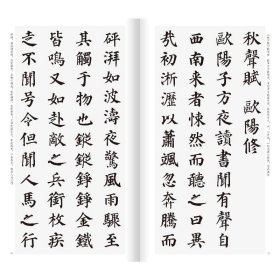 秋聲賦 歐陽修
歐陽子方夜讀書聞有聲自
西南來者悚然而聽之曰異
哉初淅瀝以蕭颯忽奔騰而
砰湃如波濤夜驚風雨驟至
其觸于物也鏦鏦錚錚金鐵
皆鳴又如赴敵之兵銜枚疾
走不聞号令但聞人馬之行